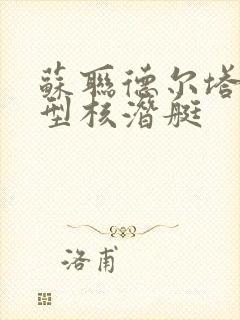 蘇聯德尔塔
型核潛艇
洛甫